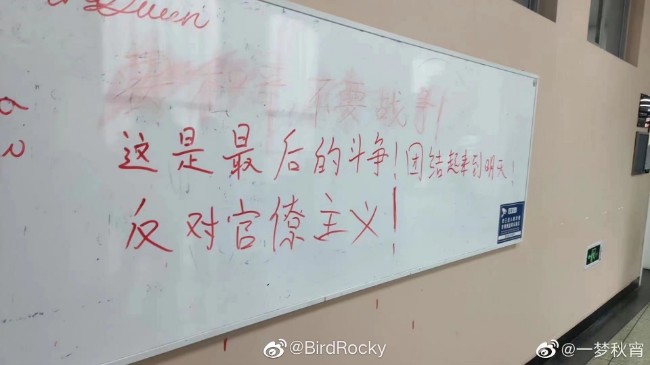 Queen
要和平不要战争!
这是最后的斗争!团结起来到明天!
反对官僚主义!
@BirdRocky
@一梦秋宵